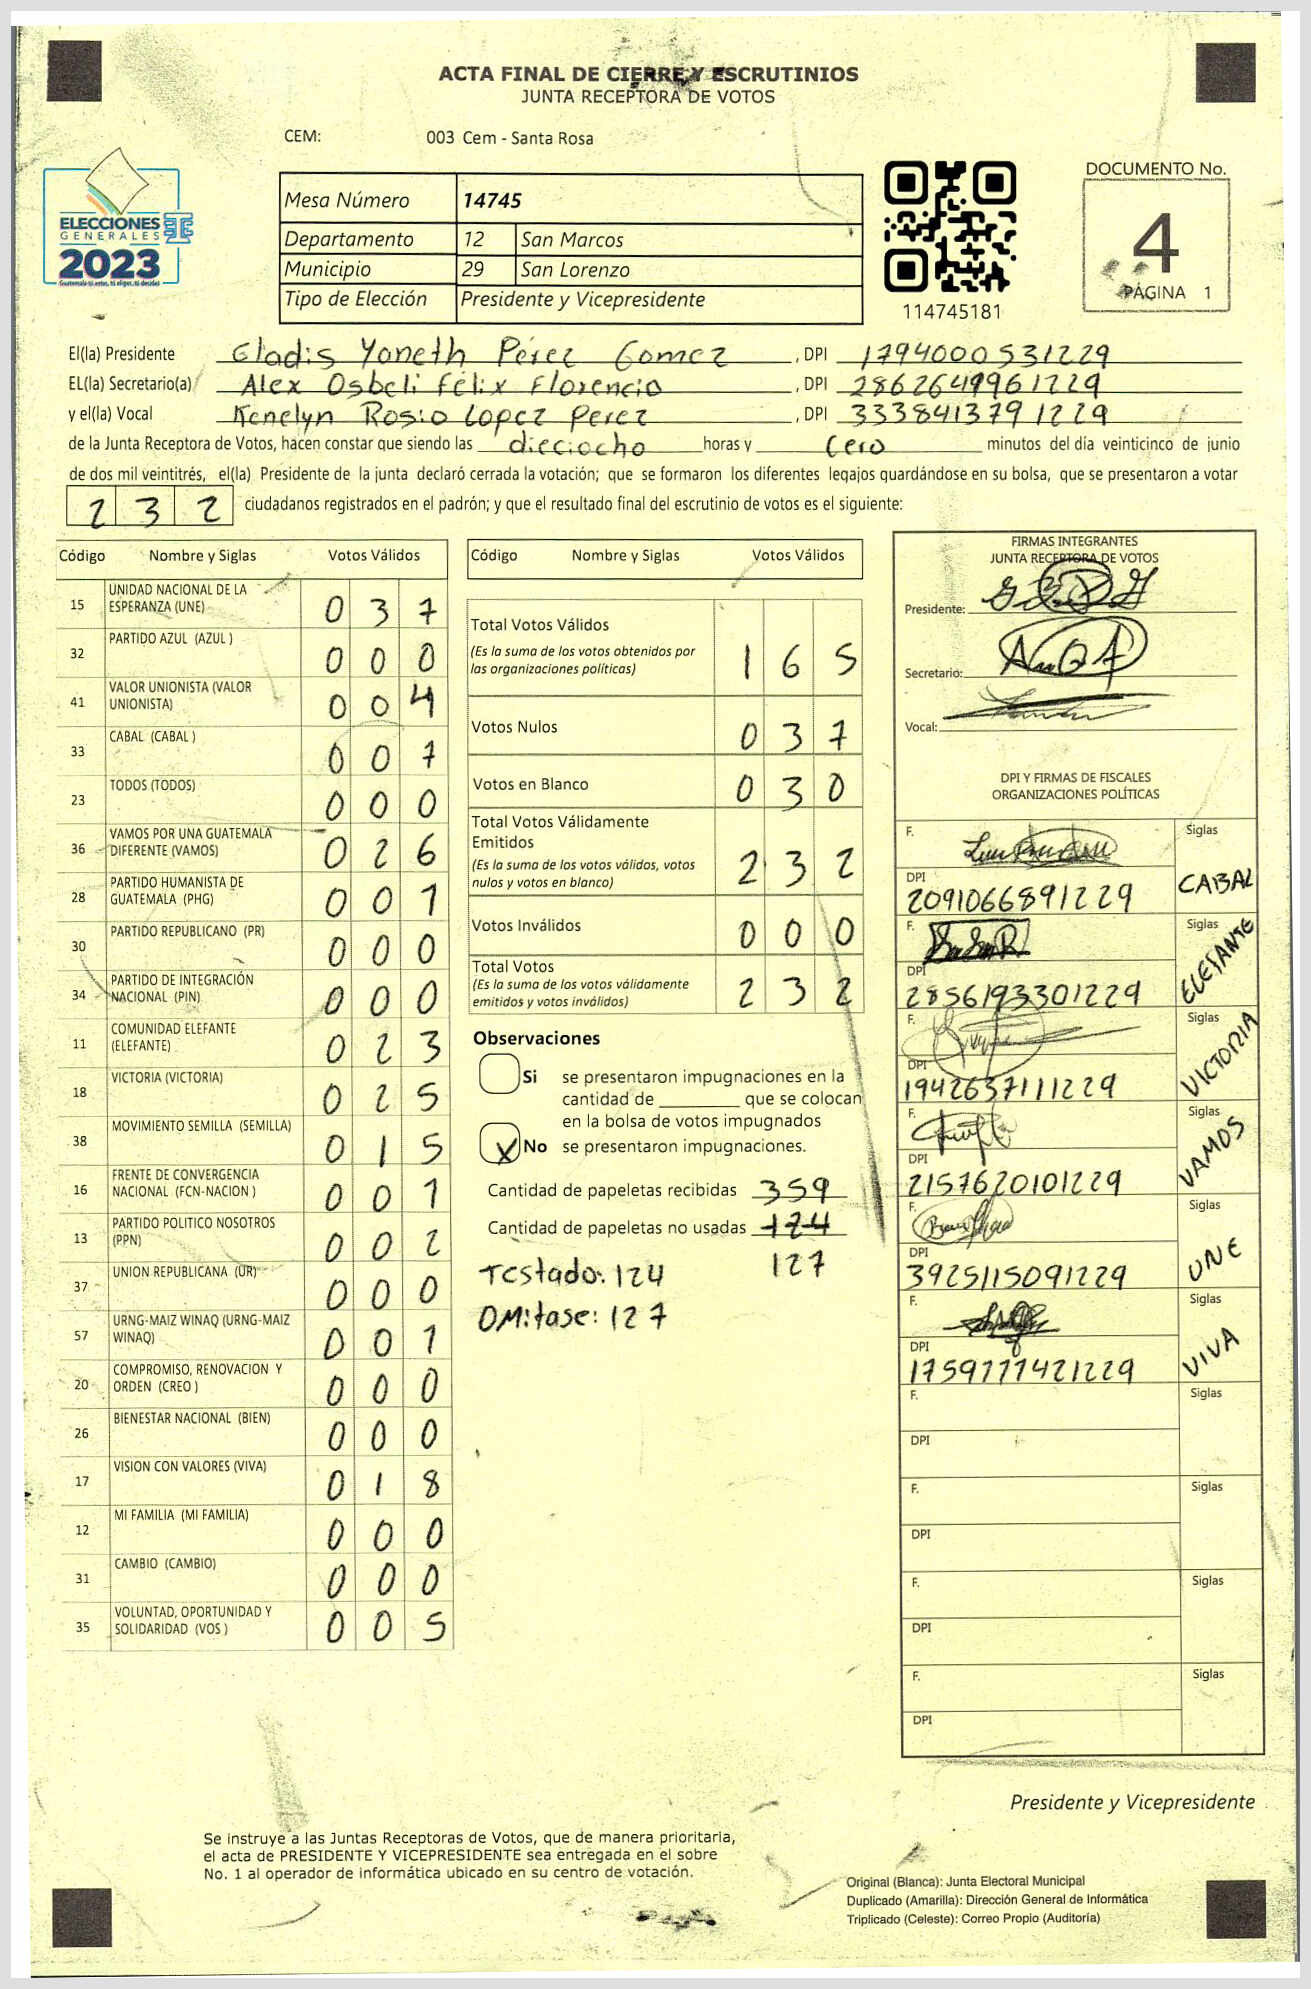 ACTA FINAL DE CIERRE Y ESCRUTINIOS
JUNTA RECEPTORA DE VOTOS
CEM: 003 Cem - Santa Rosa
ELECCIONES
GENERALES
2023
Guatemala tú votas, tú eliges, tú decides
Mesa Número 14745
Departamento 12 San Marcos
Municipio 29 San Lorenzo
Tipo de Elección Presidente y Vicepresidente
114745181
DOCUMENTO No.
4
PÁGINA 1
El(la) Presidente Gladis Yoneth Pérez Gomez, DPI 1794000531229
EL(la) Secretario(a) Alex Osbeli Félix Florencio, DPI 2862649961229
y el(la) Vocal Kenelyn Rosio Lopez Perez, DPI 3338413791229
de la Junta Receptora de Votos, hacen constar que siendo las dieciocho horas y cero minutos del día veinticinco de junio
de dos mil veintitrés, el(la) Presidente de la junta declaró cerrada la votación; que se formaron los diferentes legajos quardándose en su bolsa, que se presentaron a votar
232 ciudadanos registrados en el padrón; y que el resultado final del escrutinio de votos es el siguiente:
Código Nombre y Siglas Votos Válidos
15 UNIDAD NACIONAL DE LA ESPERANZA (UNE) 037
32 PARTIDO AZUL (AZUL ) 000
41 VALOR UNIONISTA (VALOR UNIONISTA) 004
33 CABAL (CABAL ) 007
23 TODOS (TODOS) 000
36 VAMOS POR UNA GUATEMALA DIFERENTE (VAMOS) 026
28 PARTIDO HUMANISTA DE GUATEMALA (PHG) 001
30 PARTIDO REPUBLICANO (PR) 000
34 PARTIDO DE INTEGRACIÓN NACIONAL (PIN) 000
11 COMUNIDAD ELEFANTE (ELEFANTE) 023
18 VICTORIA (VICTORIA) 025
38 MOVIMIENTO SEMILLA (SEMILLA) 015
16 FRENTE DE CONVERGENCIA NACIONAL (FCN-NACION ) 001
13 PARTIDO POLITICO NOSOTROS (PPN) 002
37 UNION REPUBLICANA (UR) 000
57 URNG-MAIZ WINAQ (URNG-MAIZ WINAQ) 001
20 COMPROMISO, RENOVACION Y ORDEN (CREO ) 000
26 BIENESTAR NACIONAL (BIEN) 000
17 VISION CON VALORES (VIVA) 018
12 MI FAMILIA (MI FAMILIA) 000
31 CAMBIO (CAMBIO) 000
35 VOLUNTAD, OPORTUNIDAD Y SOLIDARIDAD (VOS ) 005
Código Nombre y Siglas Votos Válidos
Total Votos Válidos 165
(Es la suma de los votos obtenidos por
las organizaciones políticas)
Votos Nulos 037
Votos en Blanco 030
Total Votos Válidamente
Emitidos 232
(Es la suma de los votos válidos, votos
nulos y votos en blanco)
Votos Inválidos 000
Total Votos 232
(Es la suma de los votos válidamente
emitidos y votos inválidos)
Observaciones
Si se presentaron impugnaciones en la
cantidad de ________ que se colocan
en la bolsa de votos impugnados
X No se presentaron impugnaciones.
Cantidad de papeletas recibidas 359
Cantidad de papeletas no usadas 124
127
Testado: 124
OMitase: 127
FIRMAS INTEGRANTES
JUNTA RECEPTORA DE VOTOS
Presidente:
Secretario:
Vocal:
DPI Y FIRMAS DE FISCALES
ORGANIZACIONES POLÍTICAS
F. Siglas CABAL
DPI 2091066891229
F. Siglas ELEFANTE
DPI 2856193301229
F. Siglas VICTORIA
DPI 1942637111229
F. Siglas VAMOS
DPI 2157620101229
F. Siglas UNE
DPI 3925115091229
F. Siglas VIVA
DPI 1759777421229
F. Siglas
DPI
F. Siglas
DPI
F. Siglas
DPI
F. Siglas
DPI
Presidente y Vicepresidente
Se instruye a las Juntas Receptoras de Votos, que de manera prioritaria,
el acta de PRESIDENTE Y VICEPRESIDENTE sea entregada en el sobre
No. 1 al operador de informática ubicado en su centro de votación.
Original (Blanca): Junta Electoral Municipal
Duplicado (Amarilla): Dirección General de Informática
Triplicado (Celeste): Correo Propio (Auditoría)